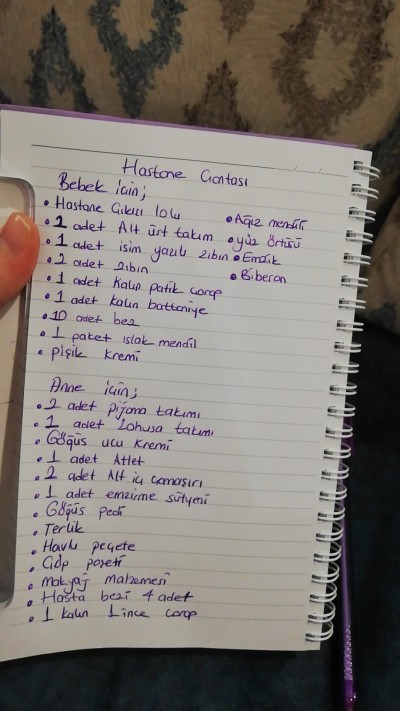 Hastane Çantası
Bebek için;
• Hastane Çıkışı 10lu
• 2 adet Alt üst takım
• 1 adet isim yazılı zıbın
• 2 adet zıbın
• 1 adet Kalın patik çorap
• 1 adet kalın battaniye
• 10 adet bez
• 1 paket ıslak mendil
• Pişik Kremi
• Ağız mendili
• yüz örtüsü
• Emzik
• Biberon
Anne için;
• 2 adet pijama takımı
• 1 adet Lohusa takımı
• Göğüs ucu Kremi
• 1 adet Atlet
• 2 adet Alt iç çamaşırı
• 1 adet emzirme sütyeni
• Göğüs pedi
• Terlik
• Havlu peçete
• Çöp poşeti
• Makyaj malzemesi
• Hasta bezi 4 adet
• 1 kalın 1 ince çorap